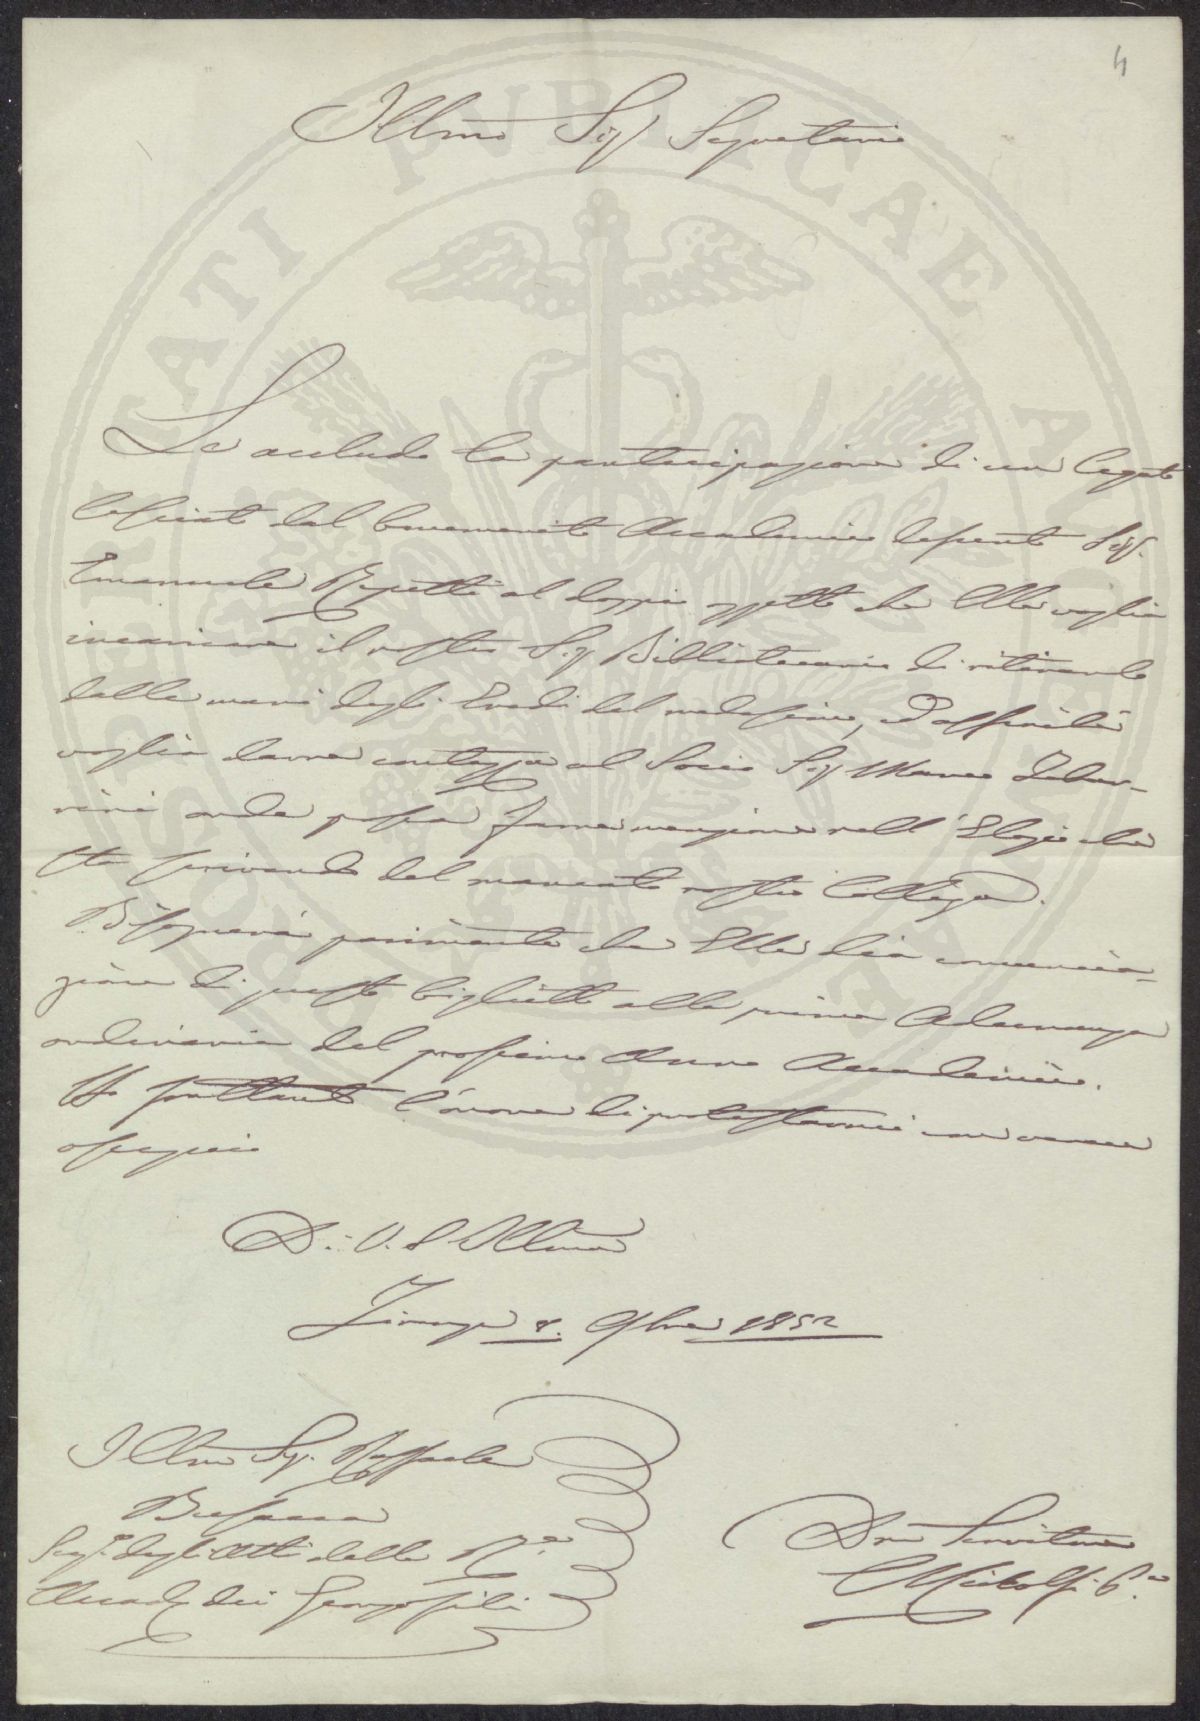 4
Illmo Sig.r Segretario
Le accludo la partecipazione di un legato
lasciato dal benemerito Accademico defunto Sig.r
Emanuele Repetti al doppio oggetto che Ella voglia
incaricare il nostro Sig.r Bibliotecario di ritirarlo
dalle mani degli Eredi del medesimo, ed affinchè
voglia darne contezza al Socio Sig.r Marco Tabar-
rini onde possa farne menzione nell'Elogio che
sta scrivendo del mancato nostro Collega.
Bisognerà parimente che Ella dia comunica-
zione di questo biglietto alla prima Adunanza
ordinaria del prossimo Anno Accademico.
Ho frattanto l'onore di protestarmi con vero
ossequio
Di V. S. Illma
Firenze 8. 9bre 1852
Illmo Sig.r Raffaele
Busacca
Seg.rio degli Atti della R.a
Accad.a dei Georgofili
Dmo Servitore
C Ridolfi P.e
PROSPERITATI PUBLICAE AUGENDAE